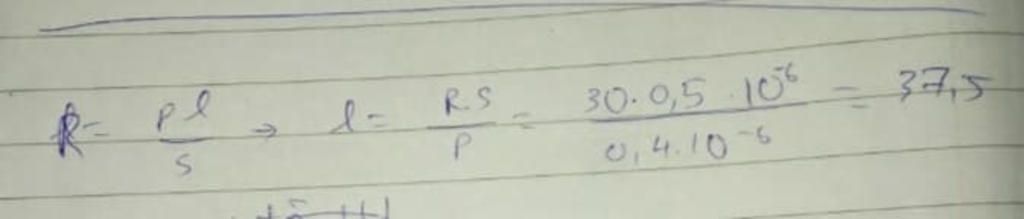 R = pl/s → l = RS/p = 30·0,5·10^-6/0,4.10^-6 = 37,5